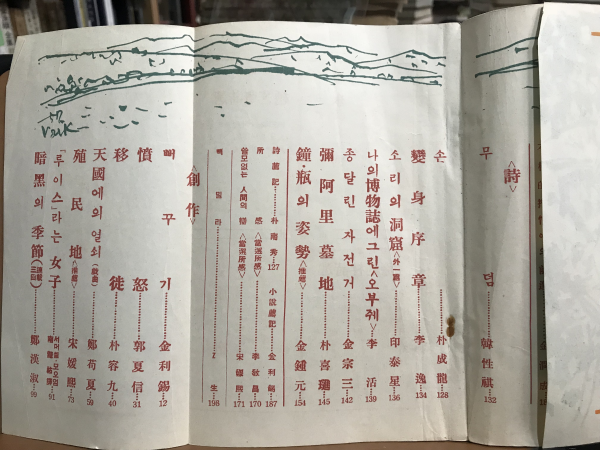 〈詩〉
무덤 …… 韓性祺 132
손 …… 朴成龍 128
變身序章 …… 李逸 134
소리의 洞窟〈外一篇〉 …… 印泰星 136
나의 博物誌에 그린〈오부제〉 …… 李活 139
종 달린 자전거 …… 金宗三 142
彌阿里墓地 …… 朴喜璡 145
鐘·甁의 姿勢〈推薦〉 …… 金鍾元 154
詩薦記 …… 朴南秀 127 小說薦記 …… 金利錫 187
所感〈當選所感〉 …… 李敬昌 170
쓸모없는 人間의 辯〈當選所感〉 …… 宋媛熙 171
生 198
〈創作〉
뻐꾸기 …… 金利錫 12
憤怒 …… 郭夏信 31
移徙 …… 朴容九 40
天國에의 열쇠〈戱曲〉 …… 鄭苟夏 59
殖民地〈推薦〉 …… 宋媛熙 73
「루이스」라는 女子 …… 서머셑 모옴 91
暗黑의 季節 …… 鄭漢淑 99